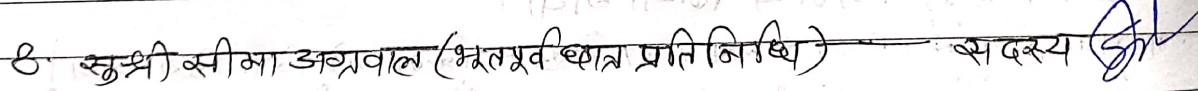 8. सुश्री सीमा अग्रवाल (भूतपूर्व छात्र प्रतिनिधि) सदस्य